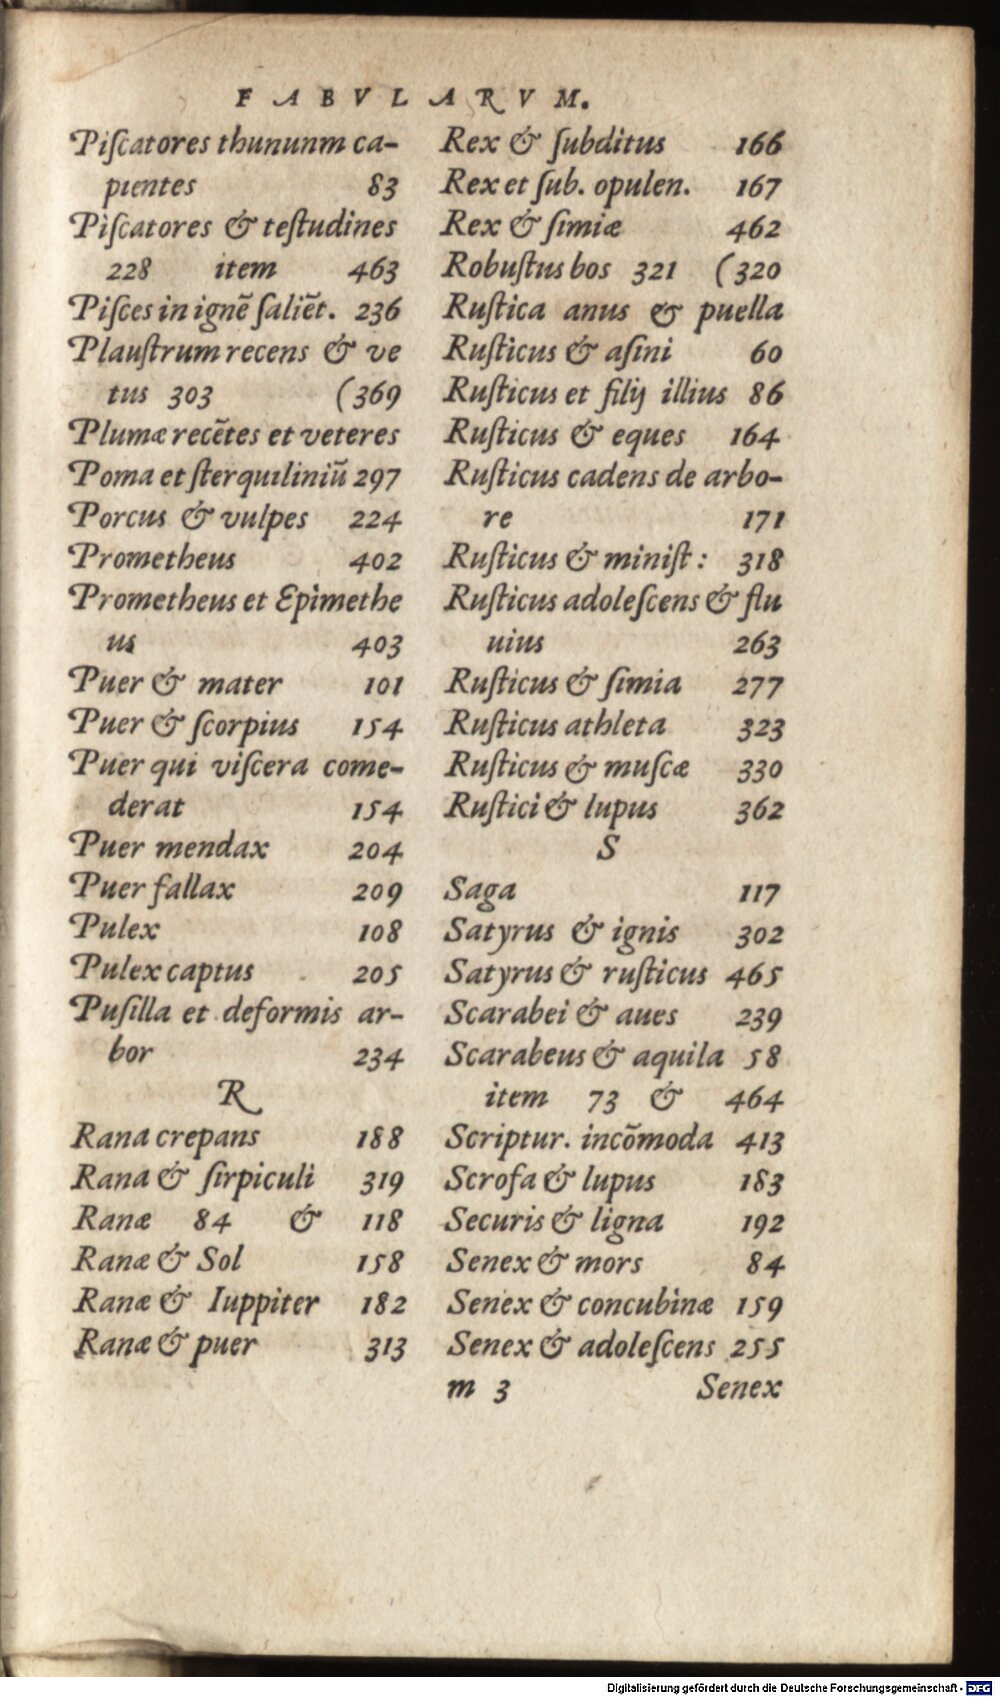 FABVLARVM.
Piſcatores thununm ca-
pientes 83
Piſcatores & teſtudines
228 item 463
Piſces in ignē ſaliēt. 236
Plauſtrum recens & ve
tus 303 (369
Plumæ recētes et veteres
Poma et ſterquiliniū 297
Porcus & vulpes 224
Prometheus 402
Prometheus et Epimethe
us 403
Puer & mater 101
Puer & ſcorpius 154
Puer qui viſcera come-
derat 154
Puer mendax 204
Puer fallax 209
Pulex 108
Pulex captus 205
Puſilla et deformis ar-
bor 234
R
Rana crepans 188
Rana & ſirpiculi 319
Ranæ 84 & 118
Ranæ & Sol 158
Ranæ & Iuppiter 182
Ranæ & puer 313
Rex & ſubditus 166
Rex et ſub. opulen. 167
Rex & ſimiæ 462
Robuſtus bos 321 (320
Ruſtica anus & puella
Ruſticus & aſini 60
Ruſticus et filij illius 86
Ruſticus & eques 164
Ruſticus cadens de arbo-
re 171
Ruſticus & miniſt: 318
Ruſticus adoleſcens & flu
uius 263
Ruſticus & ſimia 277
Ruſticus athleta 323
Ruſticus & muſcæ 330
Ruſtici & lupus 362
S
Saga 117
Satyrus & ignis 302
Satyrus & ruſticus 465
Scarabei & aues 239
Scarabeus & aquila 58
item 73 & 464
Scriptur. incōmoda 413
Scrofa & lupus 183
Securis & ligna 192
Senex & mors 84
Senex & concubinæ 159
Senex & adoleſcens 255
m 3 Senex
Digitalisierung gefördert durch die Deutsche Forschungsgemeinschaft - DFG